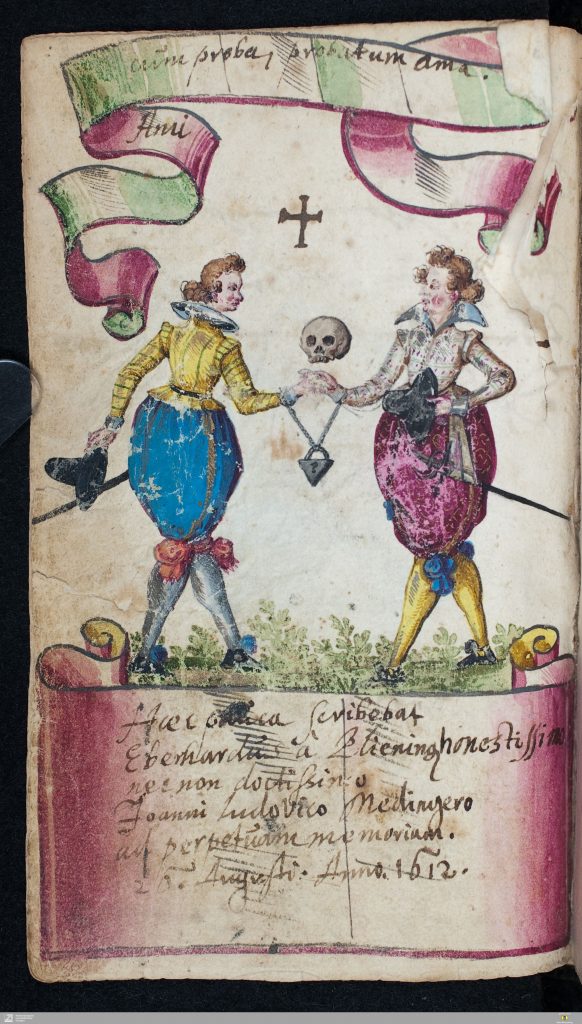 Ami
cum proba, probatum ama.
Haec scribebat
Eberhardus à Plieningh honestissimo
nec non doctissimo
Joanni Ludovico Medingero
ad perpetuam memoriam.
Augusti. Anno. 1612.